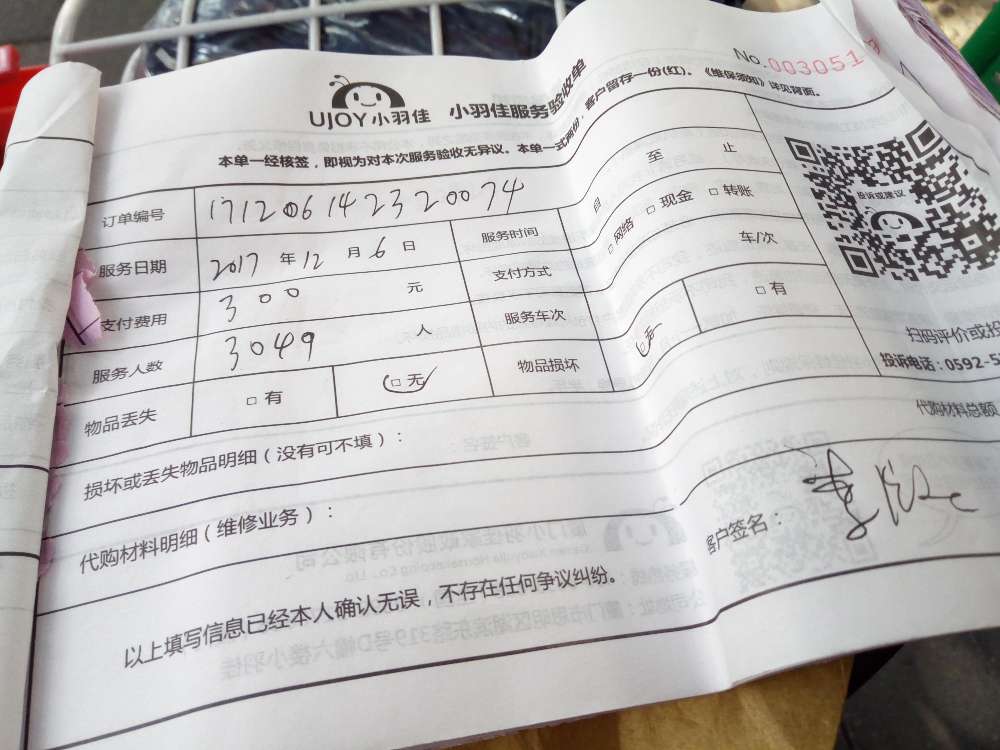 No.003051
UJOY小羽佳 小羽佳服务验收单
本单一经核签，即视为对本次服务验收无异议。本单一式两份，客户留存一份(红)。《维保须知》详见背面。
订单编号 171206142320074
服务日期 2017 年 12 月 6 日 服务时间 自 至 止
支付费用 300 元 支付方式 □ 网络 □ 现金 □ 转账
服务人数 3049 人 服务车次 车/次
物品丢失 □ 有 □ 无 物品损坏 □ 无 □ 有
投诉或建议
扫码评价或投
投诉电话：0592-5
损坏或丢失物品明细（没有可不填）：
代购材料明细（维修业务）： 代购材料总额
以上填写信息已经本人确认无误，不存在任何争议纠纷。 客户签名：